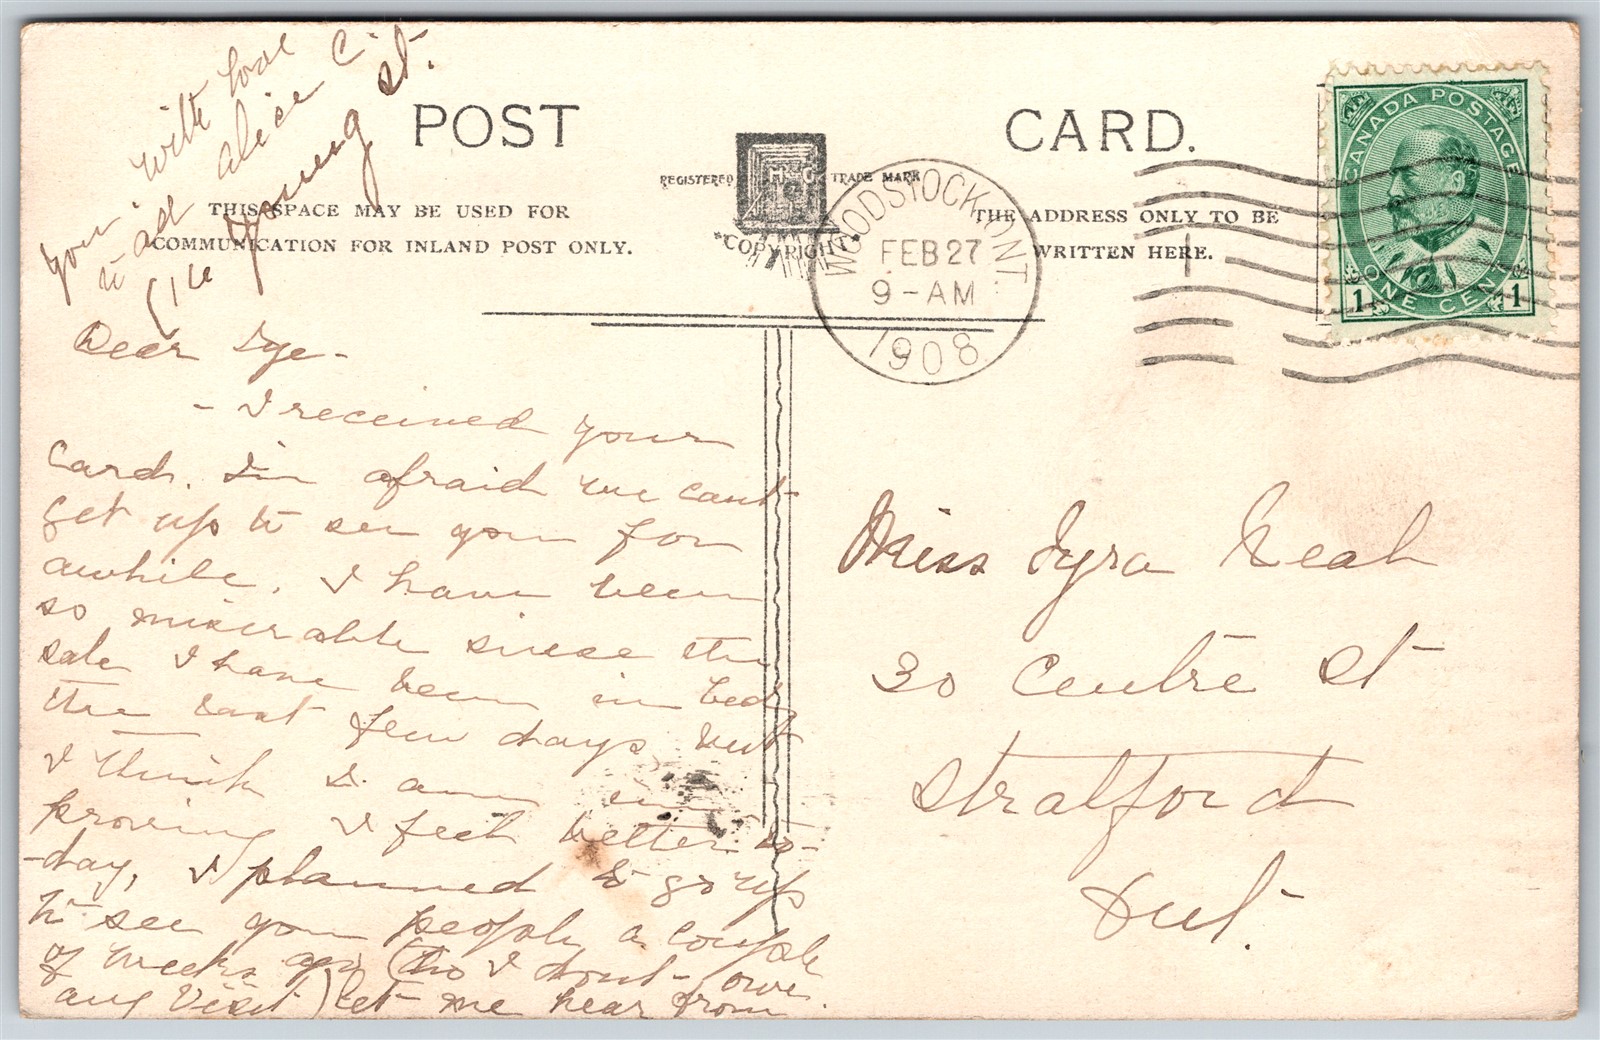 POST CARD.
REGISTERED TRADE MARK
H G
"COPYRIGHT"
THIS SPACE MAY BE USED FOR
COMMUNICATION FOR INLAND POST ONLY.
THE ADDRESS ONLY TO BE
WRITTEN HERE.
WOODSTOCK, ONT.
FEB 27
9-AM
1908
1
CANADA POSTAGE
ONE CENT
1 1
Dear Tye-
- I received your
card. I'm afraid we cant
get up to see you for
awhile. I have been
so miserable since the
sale I have been in bed
the last few days but
I think I am im
proving I feel better to-
-day, I planned to go up
to see you people a couple
of weeks ago (tho I dont owe
any visit) let me hear from
you with love
to all Alice C.
Young St.
Miss Tyra Neal
30 Centre St
Stratford
Ont.